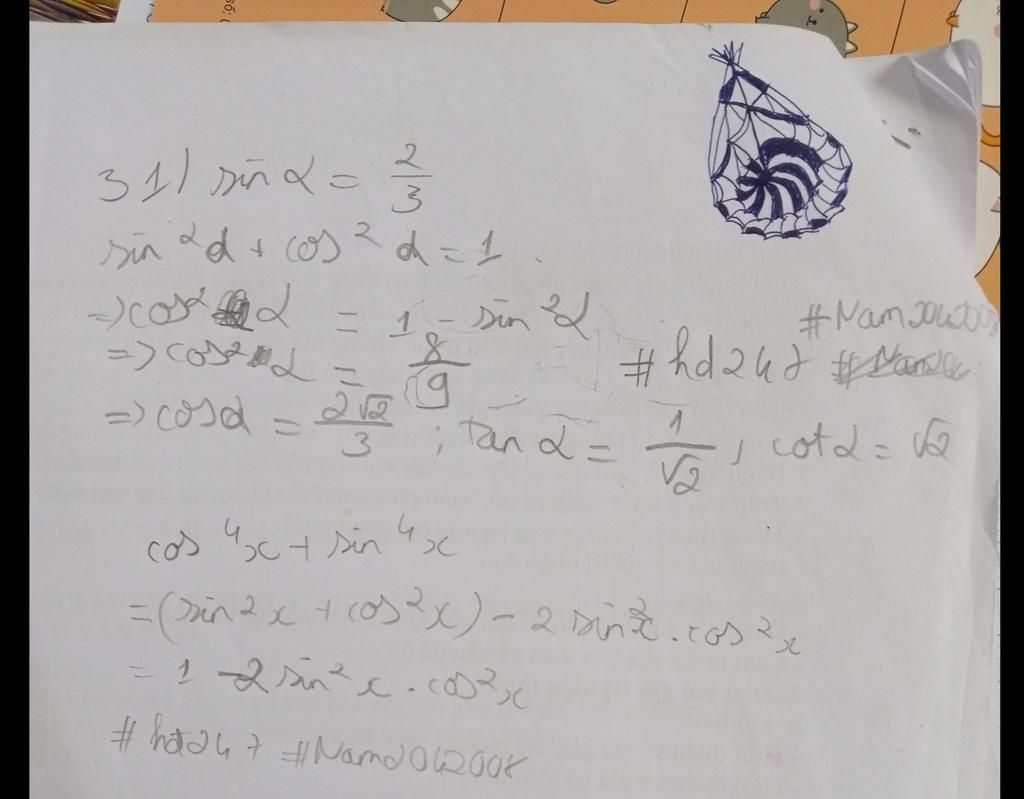 31) sin α = 2/3
sin²α + cos²α = 1.
=> cos²α = 1 - sin²α
#Nam2042008
=> cos²α = 8/9
#hd247
=> cosα = 2√2/3 ; tan α = 1/√2, cotα = √2
cos⁴x + sin⁴x
= (sin²x + cos²x) - 2 sin²x . cos²x
= 1 - 2 sin²x . cos²x
#hd247 #Nam2042008